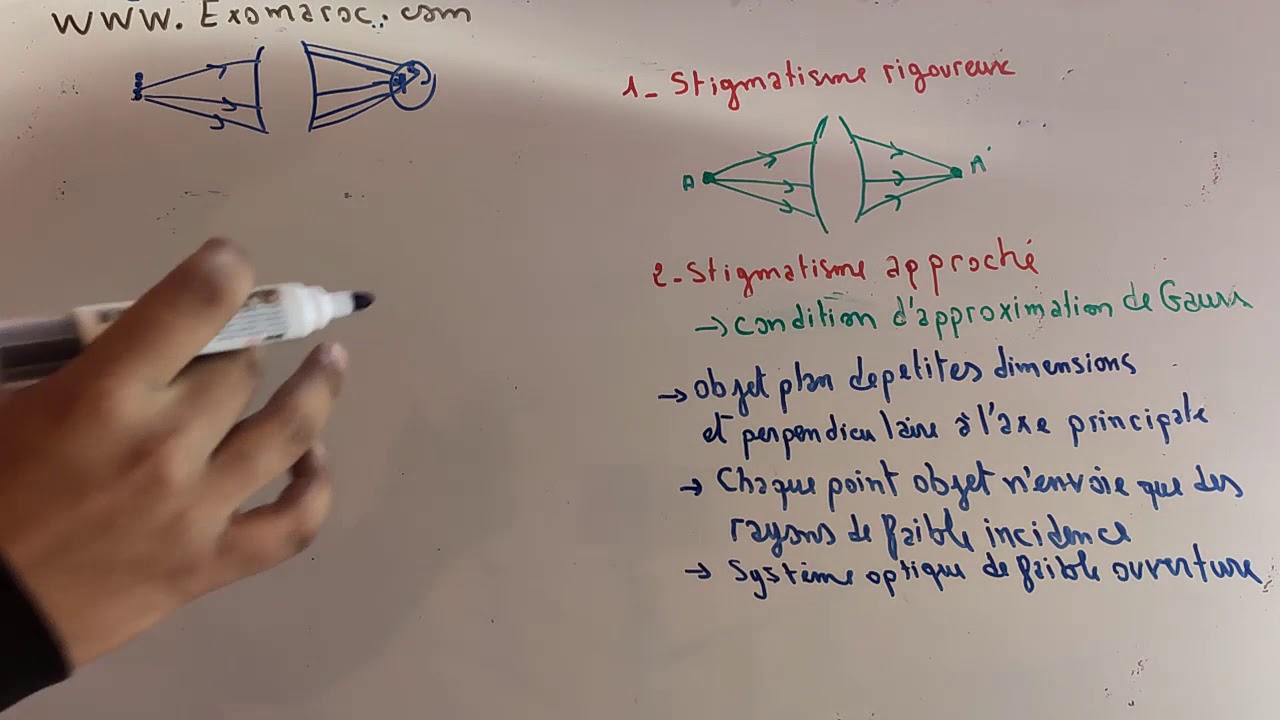 www.Exomaroc.com
1- Stigmatisme rigoureux
A A'
2- Stigmatisme approché
→ condition d'approximation de Gauss
→ objet plan de petites dimensions
et perpendiculaire à l'axe principale
→ Chaque point objet n'envoie que des
rayons de faible incidence
→ Système optique de faible ouverture